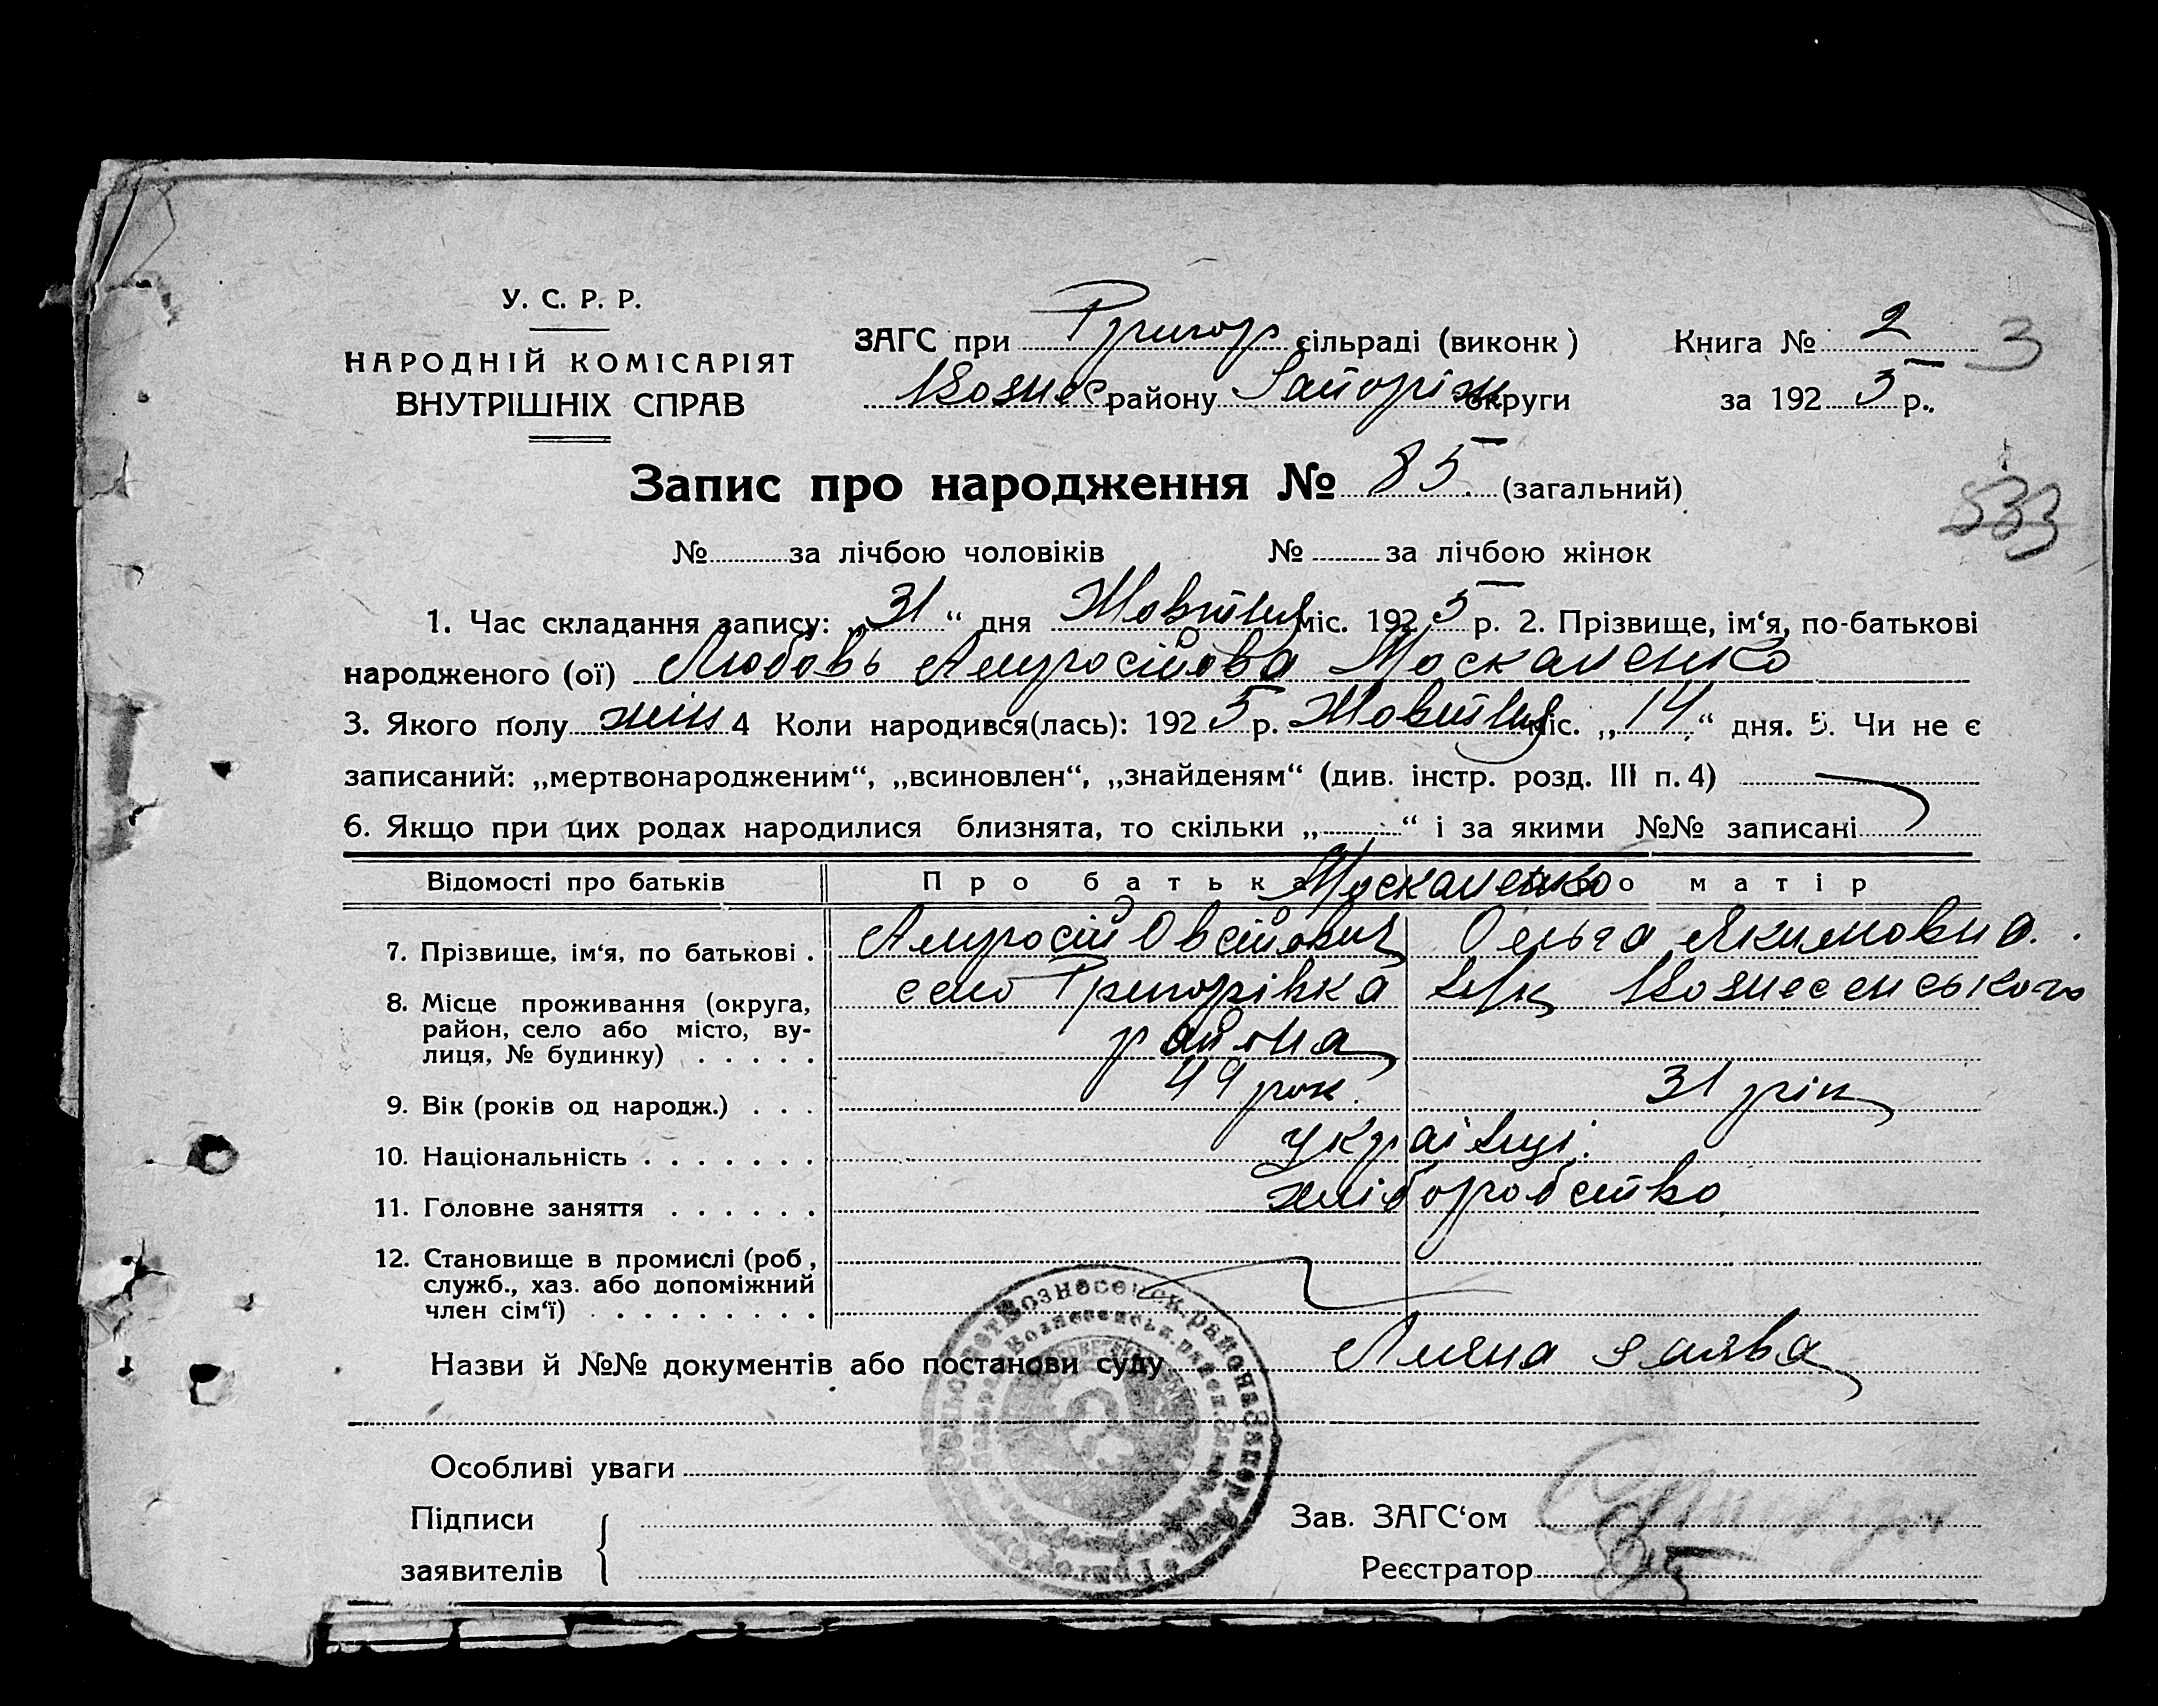 У. С. Р. Р.
НАРОДНІЙ КОМІСАРІЯТ
ВНУТРІШНІХ СПРАВ
ЗАГС при Григор сільраді (виконк )
Вознес району Запоріж округи
Книга № 2 3
за 192 5 р.
Запис про народження № 85 (загальний)
533
№ за лічбою чоловіків № за лічбою жінок
1. Час складання запису: „ 31 “ дня Жовтня міс. 192 5 р. 2. Прізвище, ім‘я, по-батькові
народженого (ої) Любовь Амросійова Москаленко
3. Якого полу жін 4 Коли народився(лась): 192 5 р. Жовтня міс. „ 14 “ дня. 5. Чи не є
записаний: „мертвонародженим“, „всиновлен“, „знайденям“ (див. інстр. розд. III п. 4)
6. Якщо при цих родах народилися близнята, то скільки „ “ і за якими №№ записані
Відомості про батьків Про батька Москаленко Про матір
7. Прізвище, ім‘я, по батькові . Амросій Овсійович Ольга Якимовна.
8. Місце проживання (округа, село Григорівка Вознесенського
район, село або місто, ву- района
лиця, № будинку) . . . . .
9. Вік (років од народж.) . . . 49 рок. 31 рік
10. Національність . . . . . . . українці.
11. Головне заняття . . . . . . хліборобство
12. Становище в промислі (роб ,
служб., хаз. або допоміжний
член сім‘ї) . . . . . . . . .
Назви й №№ документів або постанови суду заява
Особливі уваги
Підписи Зав. ЗАГС‘ом
заявителів Реєстратор